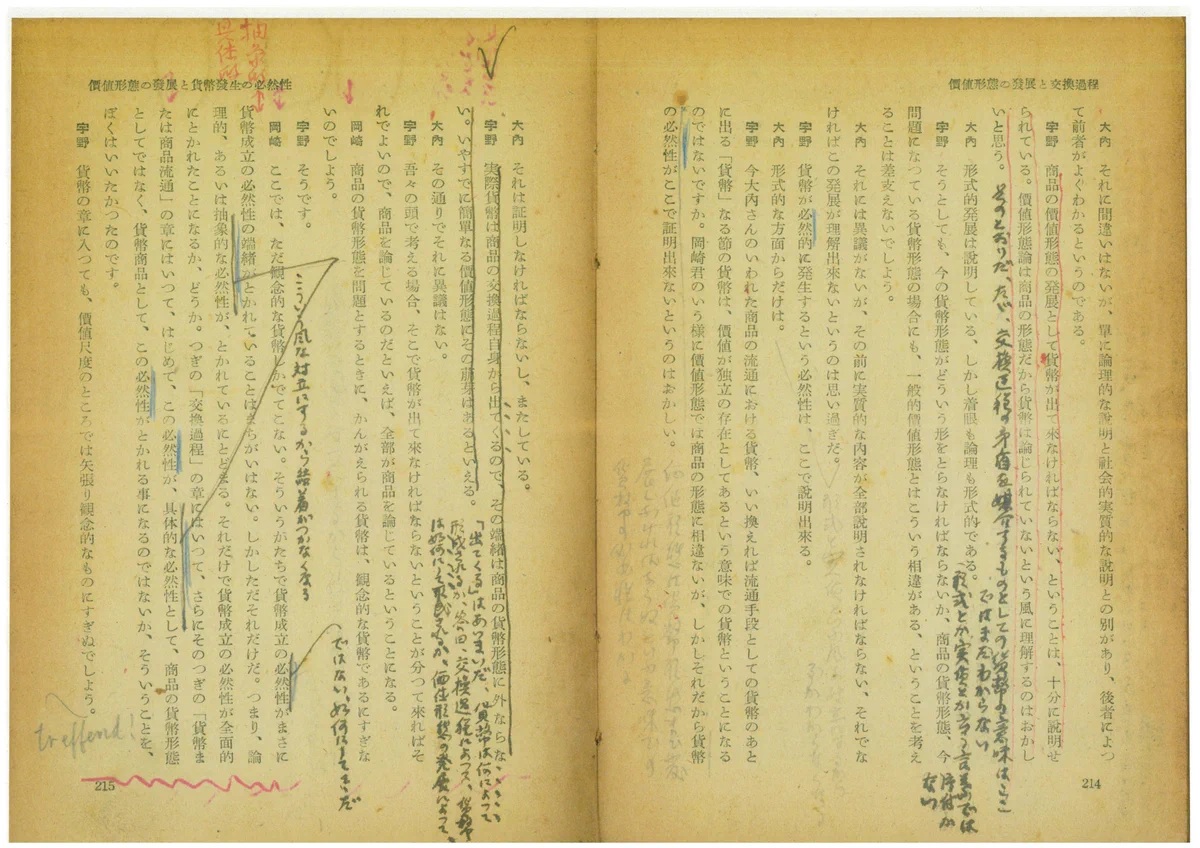 價値形態の發展と交換過程
大內 それに間違いはないが、單に論理的な說明と社会的実質的な說明との別があり、後者によつ
て前者がよくわかるというのである。
宇野 商品の價値形態の発展として貨幣が出て来なければならない、ということは、十分に說明せ
られている。價値形態論は商品の形態だから貨幣は論じられていないという風に理解するのはおかし
いと思う。
そのとおりだ、たゞ、交換過程の矛盾を媒介するものとしての貨幣の意味はここ
ではまだわからない
大內 形式的発展は說明している、しかし着眼も論理も形式的である。
形式とか実質とか言う言葉では
片付かない
宇野 そうとしても、今の貨幣形態がどういう形をとらなければならないか、商品の貨幣形態、今
問題になつている貨幣形態の場合にも、一般的價値形態とはこういう相違がある、ということを考え
ることは差支えないでしよう。
大內 それには異議がないが、その前に実質的な內容が全部說明されなければならない、それでな
ければこの発展が理解出来ないというのは思い過ぎだ。
宇野 貨幣が必然的に発生するという必然性は、ここで說明出来る。
大內 形式的な方面からだけは。
宇野 今大內さんのいわれた商品の流通における貨幣、いい換えれば流通手段としての貨幣のあと
に出る「貨幣」なる節の貨幣は、價値が独立の存在としてあるという意味での貨幣ということになる
のではないですか。岡崎君のいう様に價値形態では商品の形態に相違ないが、しかしそれだから貨幣
の必然性がここで証明出来ないというのはおかしい。
214
價値形態の發展と貨幣發生の必然性
抽象的
具体的
大內 それは証明しなければならないし、またしている。
宇野 実際貨幣は商品の交換過程自身から出てくるので、その端緒は商品の貨幣形態に外ならな
い。いやすでに簡單なる價値形態にその萠芽はあるといえる。
「出てくる」はあいまいだ、貨幣は何によって
形成されるか、答曰、交換過程によつて、
は如何にして形成されるか、価値形態の発展によって、
大內 その通りでそれに異議はない。
宇野 吾々の頭で考える場合、そこで貨幣が出て来なければならないということが分つて来ればそ
れでよいので、商品を論じているのだといえば、全部が商品を論じているということになる。
岡崎 商品の貨幣形態を問題とするときに、かんがえられる貨幣は、観念的な貨幣であるにすぎな
いのでしよう。
ではない、如何にしてここだ
宇野 そうです。
こういう風な対立にするから結着がつかなくなる
岡崎 ここでは、ただ観念的な貨幣しかでてこない。そういうかたちで貨幣成立の必然性がまさに
貨幣成立の必然性の端緒がとかれていることはまちがいはない。しかしただそれだけだ。つまり、論
理的、あるいは抽象的な必然性が、とかれているにとどまる。それだけで貨幣成立の必然性が全面的
にとかれたことになるか、どうか。つぎの「交換過程」の章にはいつて、さらにそのつぎの「貨幣ま
たは商品流通」の章にはいつて、はじめて、この必然性が、具体的な必然性として、商品の貨幣形態
としてではなく、貨幣商品として、この必然性がとかれる事になるのではないか、そういうことを、
ぼくはいいたかつたのです。
宇野 貨幣の章に入つても、價値尺度のところでは矢張り観念的なものにすぎぬでしよう。
treffend!
215